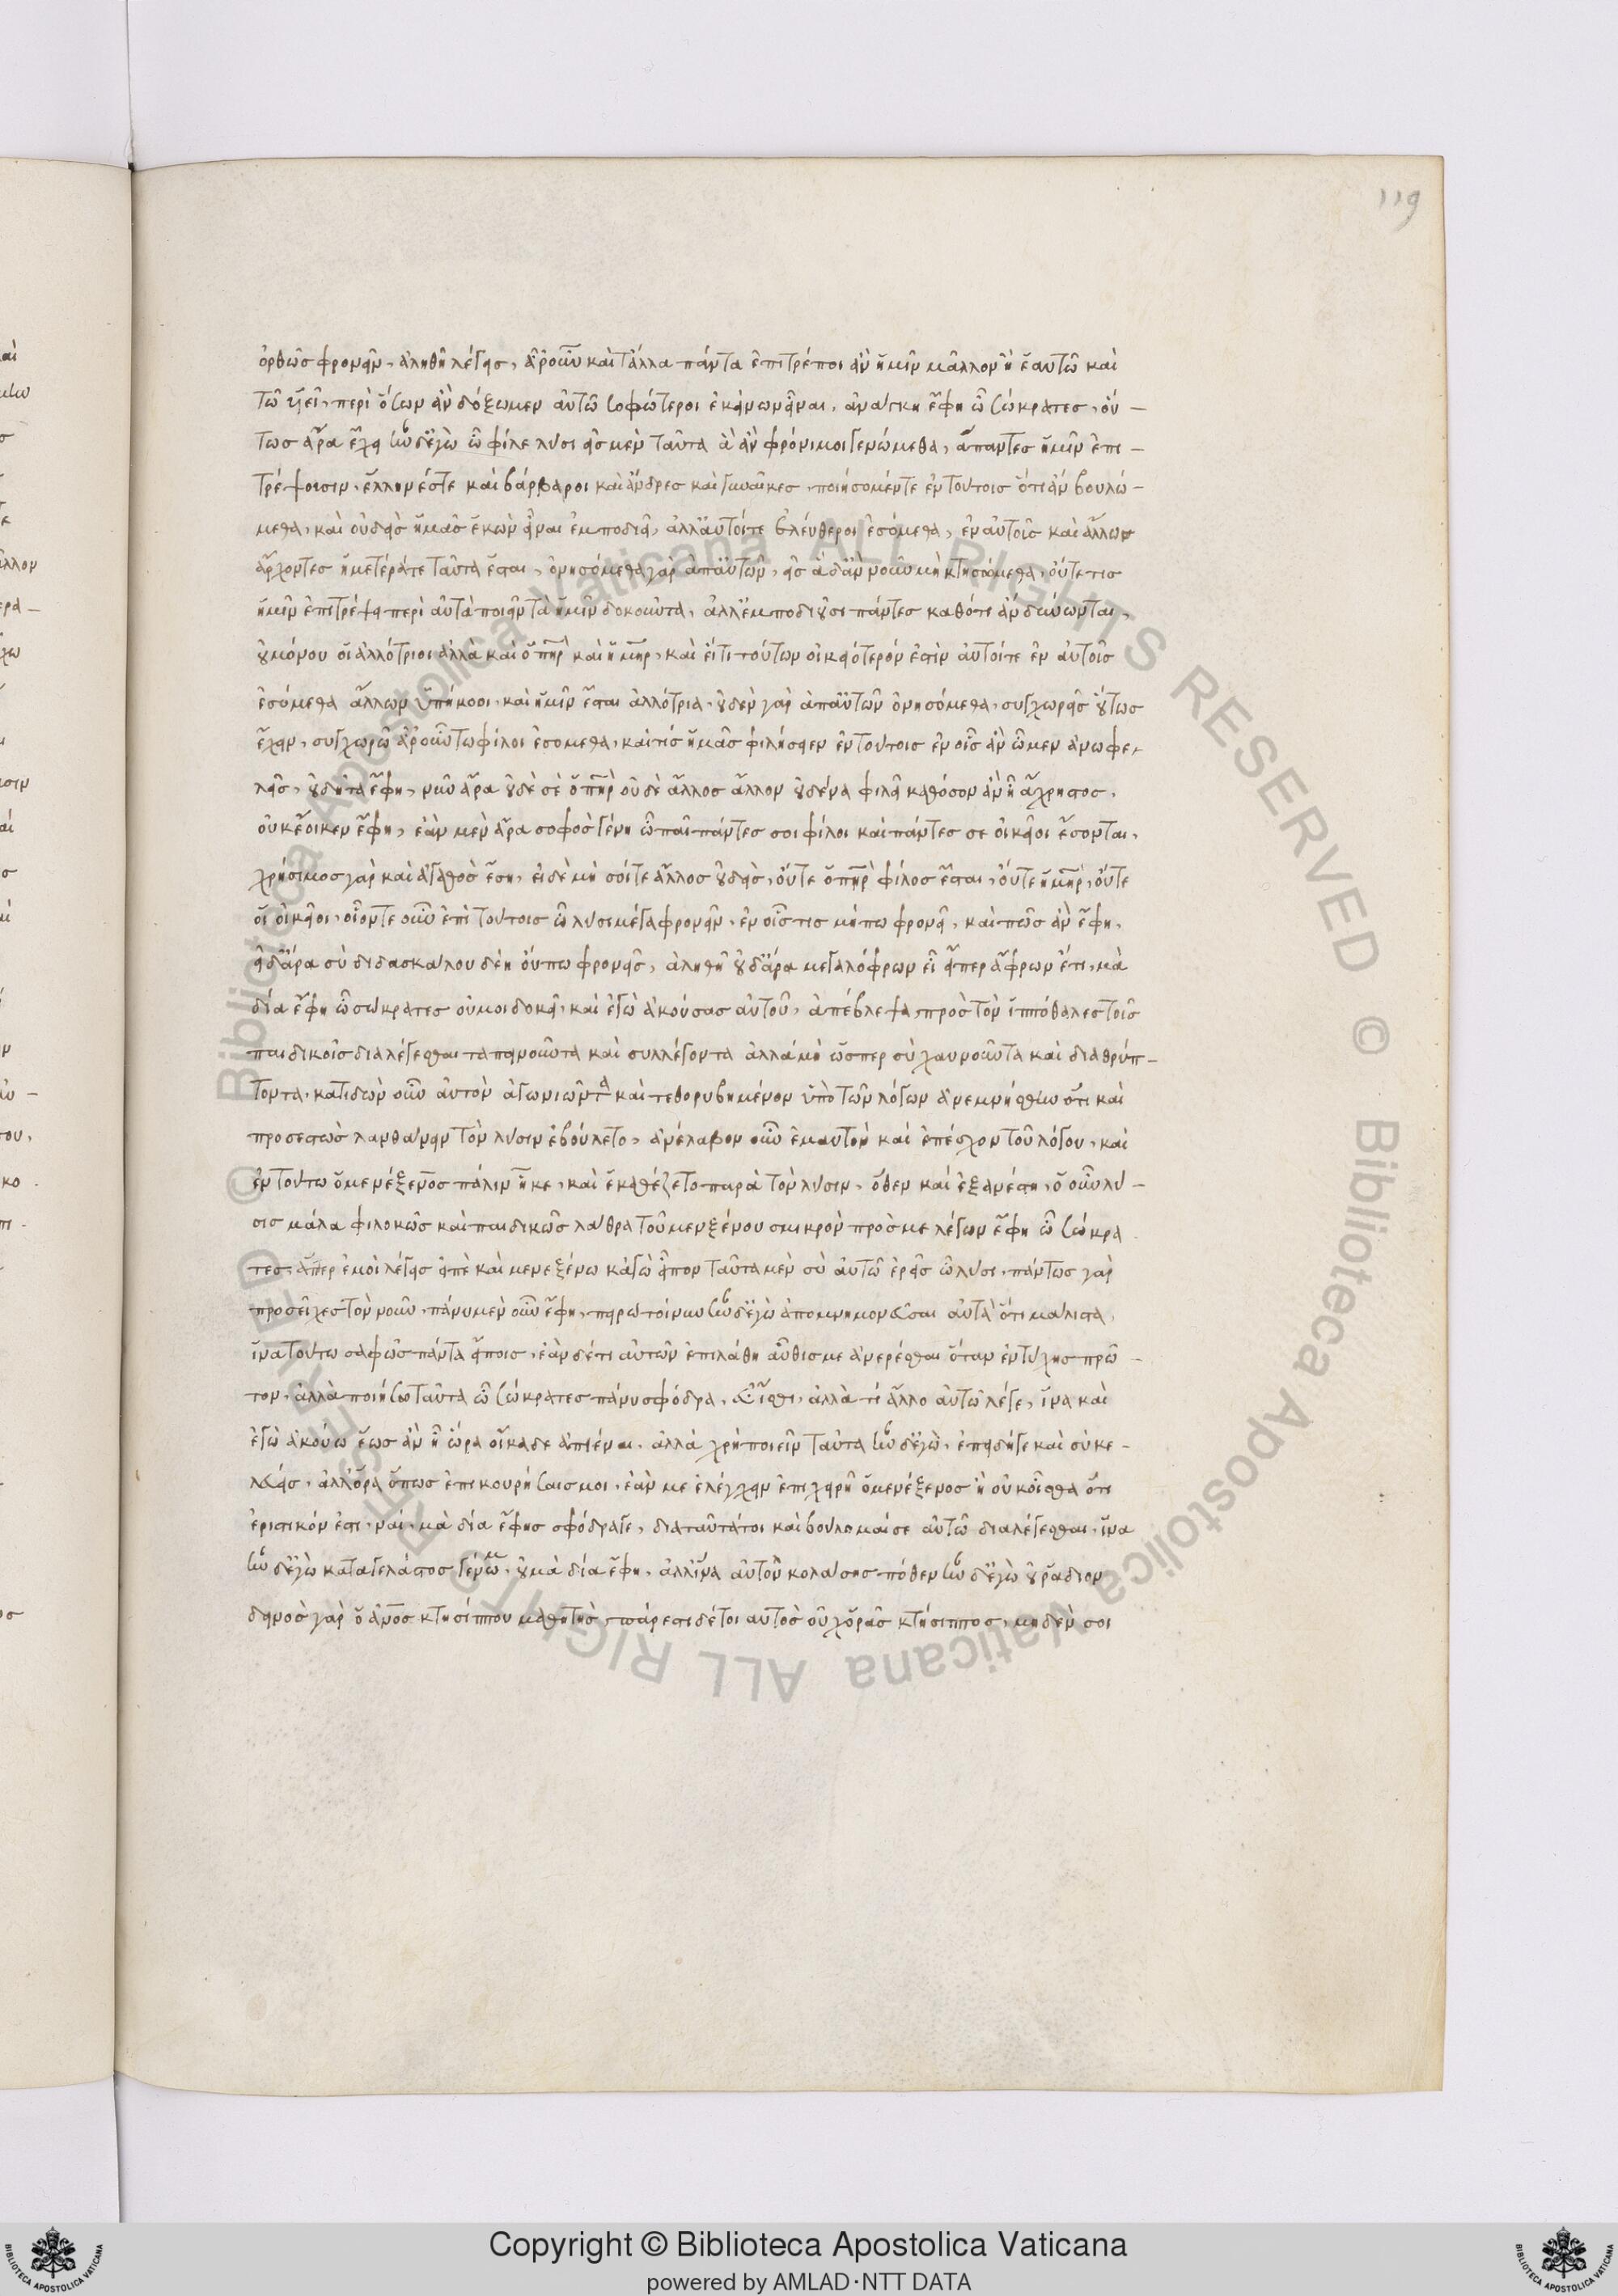 119
ὀρθῶσ φρονεῖν, ἀληθῆ λέγεισ, ἆροὖν καὶ τἄλλα πάντα ἐπιτρέποι ἂν ἡμῖν μᾶλλον ἢ ἑαυτῶ καὶ
τῶ υἱεῖ, περὶ ὅσων ἂν δόξωμεν αὐτῶ σοφώτεροι ἐκείνων εἶναι, ἀνάγκη ἔφη ὦ σώκρατεσ, οὕ-
τωσ ἄρα ἔχει ἦν δἐγὼ ὦ φίλε λύσι εἰσ μὲν ταῦτα ἃ ἂν φρόνιμοι γενώμεθα, ἅπαντεσ ἡμῖν ἐπι-
τρέψουσιν, ἕλληνέστε καὶ βάρβαροι καὶ ἄνδρεσ καὶ γυναῖκεσ, ποιήσομέντε ἐν τούτοισ ὅτι ἂν βουλώ-
μεθα, καὶ οὐδεὶσ ἡμᾶσ ἑκὼν εἶναι ἐμποδιεῖ, ἀλλἀυτοίτε ἐλεύθεροι ἐσόμεθα, ἐν αὐτοῖσ καὶ ἄλλων
ἄρχοντεσ ἡμετέράτε ταῦτα ἔσται, ὀνησόμεθα γὰρ ἀπἀυτῶν, εἰσ ἃ δἂν νοῦν μὴ κτησώμεθα, οὔτε τισ
ἡμῖν ἐπιτρέψει περὶ αὐτὰ ποιεῖν τὰ ἡμῖν δοκοῦντα, ἀλλἐμποδιοῦσι πάντεσ καθότι ἂν δύνωνται,
οὐ μόνον οἱ ἀλλότριοι ἀλλὰ καὶ ὁ πηρ καὶ ἡ μηρ, καὶ εἴτι τούτων οἰκειότερόν ἐστὶν ἀυτοίτε ἐν αὐτοῖσ
ἐσόμεθα ἄλλων ὑπήκοοι, καὶ ἡμῖν ἔσται ἀλλότρια, οὐδὲν γὰρ ἀπἀυτῶν ὀνησόμεθα, συγχωρεῖσ οὕτωσ
ἔχειν, συγχωρῶ ἆροὖν τω φίλοι ἐσόμεθα, καὶ τίσ ἡμᾶσ φιλήσειεν ἐν τούτοισ ἐν οἷσ ἂν ὦμεν ἀνωφε-
λεῖσ, οὐ δῆτα ἔφη, νῦν ἄρα οὐδὲ σὲ ὁ πηρ οὐδὲ ἄλλοσ ἄλλον οὐδένα φιλεῖ καθόσον ἂν ἦ ἄχρηστοσ,
οὐκ ἔοικεν ἔφη, ἐὰν μὲν ἄρα σοφὸσ γένη ὦ παῖ πάντεσ σοι φίλοι καὶ πάντεσ σε οἰκεῖοι ἔσονται,
χρήσιμοσ γὰρ καὶ ἀγαθὸσ ἔση, εἰ δὲ μὴ σόιτε ἄλλοσ οὐδεὶσ, οὔτε ὁ πηρ φίλοσ ἔσται, οὔτε ἡ μηρ, οὔτε
οἱ οἰκεῖοι, οἷόντε οὖν ἐπὶ τούτοισ ὦ λύσι μέγα φρονεῖν, ἐν οἷσ τισ μήπω φρονεῖ, καὶ πῶσ ἂν ἔφη,
εἰ δἄρα σὺ διδασκάλου δέη οὔπω φρονεῖσ, ἀληθῆ οὐδἄρα μεγαλόφρων εἶ εἴπερ ἄφρων ἔτι, μὰ
δία ἔφη ὦ σώκρατεσ οὔμοι δοκεῖ, καὶ ἐγὼ ἀκούσασ αὐτοῦ, ἀπέβλεψα πρὸσ τὸν ἱππόθαλεσ τοῖσ
παιδικοῖσ διαλέγεσθαι ταπεινοῦντα καὶ συλλέγοντα ἀλλὰ μὴ ὥσπερ σὺ χαυνοῦντα καὶ διαθρύπ-
τοντα, κατιδὼν οὖν αὐτὸν ἀγωνιῶντα καὶ τεθορυβημένον ὑπὸ τῶν λόγων ἀνεμνήσθην ὅτι καὶ
προσεστὼσ λανθάνειν τὸν λύσιν ἐβούλετο, ἀνέλαβον οὖν ἐμαυτὸν καὶ ἐπέσχον τοῦ λόγου, καὶ
ἐν τούτω ὁ μενέξενοσ πάλιν ἧκε, καὶ ἐκαθέζετο παρὰ τὸν λύσιν, ὅθεν καὶ ἐξανέστη, ὁ οὖν λύ-
σισ μάλα φιλοκῶσ καὶ παιδικῶσ λάθρα τοῦ μενξένου σμικρὸν πρόσ με λέγων ἔφη ὦ σώκρα
τεσ, ἅπερ ἐμοὶ λέγεισ εἰπὲ καὶ μενεξένω κἀγὼ εἶπον ταῦτα μὲν σὺ αὐτῶ ἐρεῖσ ὦ λύσι, πάντωσ γὰρ
προσεῖχεσ τὸν νοῦν, πάνυ μὲν οὖν ἔφη, πειρῶ τοίνυν ἦν δἐγὼ ἀπομνημονεῦσαι αὐτὰ ὅτι μάλιστα,
ἵνα τούτω σαφῶσ πάντα εἴποισ, ἐὰν δέ τι αὐτῶν ἐπιλάθη αὖθίσ με ἀνερέσθαι ὅταν ἐντύχησ πρῶ-
τον, ἀλλὰ ποιήσω ταῦτα ὦ σώκρατεσ πάνυ σφόδρα, εὖ ἴσθι, ἀλλὰ τί ἄλλο αὐτῶ λέγε, ἵνα καὶ
ἐγὼ ἀκούω ἕωσ ἂν ἦ ὥρα οἴκαδε ἀπιέναι, ἀλλὰ χρὴ ποιεῖν ταῦτα ἦν δἐγὼ, ἐπειδήγε καὶ σὺ κε-
λεύεισ, ἀλλὅρα ὅπωσ ἐπικουρήσεισ μοι, ἐάν με ἐλέγχειν ἐπιχειρῆ ὁ μενέξενοσ ἢ οὐκ οἶσθα ὅτι
ἐριστικόν ἐστι, ναὶ, μὰ δία ἔφησ σφόδραγε, διαταῦτάτοι καὶ βούλομαί σε αὐτῶ διαλέγεσθαι, ἵνα
ἦν δἐγὼ καταγέλαστοσ γένωμ, οὐ μὰ δία ἔφη, ἀλλἵνα αὐτὸν κολάσησ πόθεν ἦν δἐγὼ οὐ ῥάδιον
δεινὸσ γὰρ ὁ ἀνοσ κτησίππου μαθητὴσ πάρεστι δέτοι αὐτὸσ οὐχ ὁρᾶσ κτήσιπποσ, μηδέν σοι
Copyright © Biblioteca Apostolica Vaticana
powered by AMLAD·NTT DATA